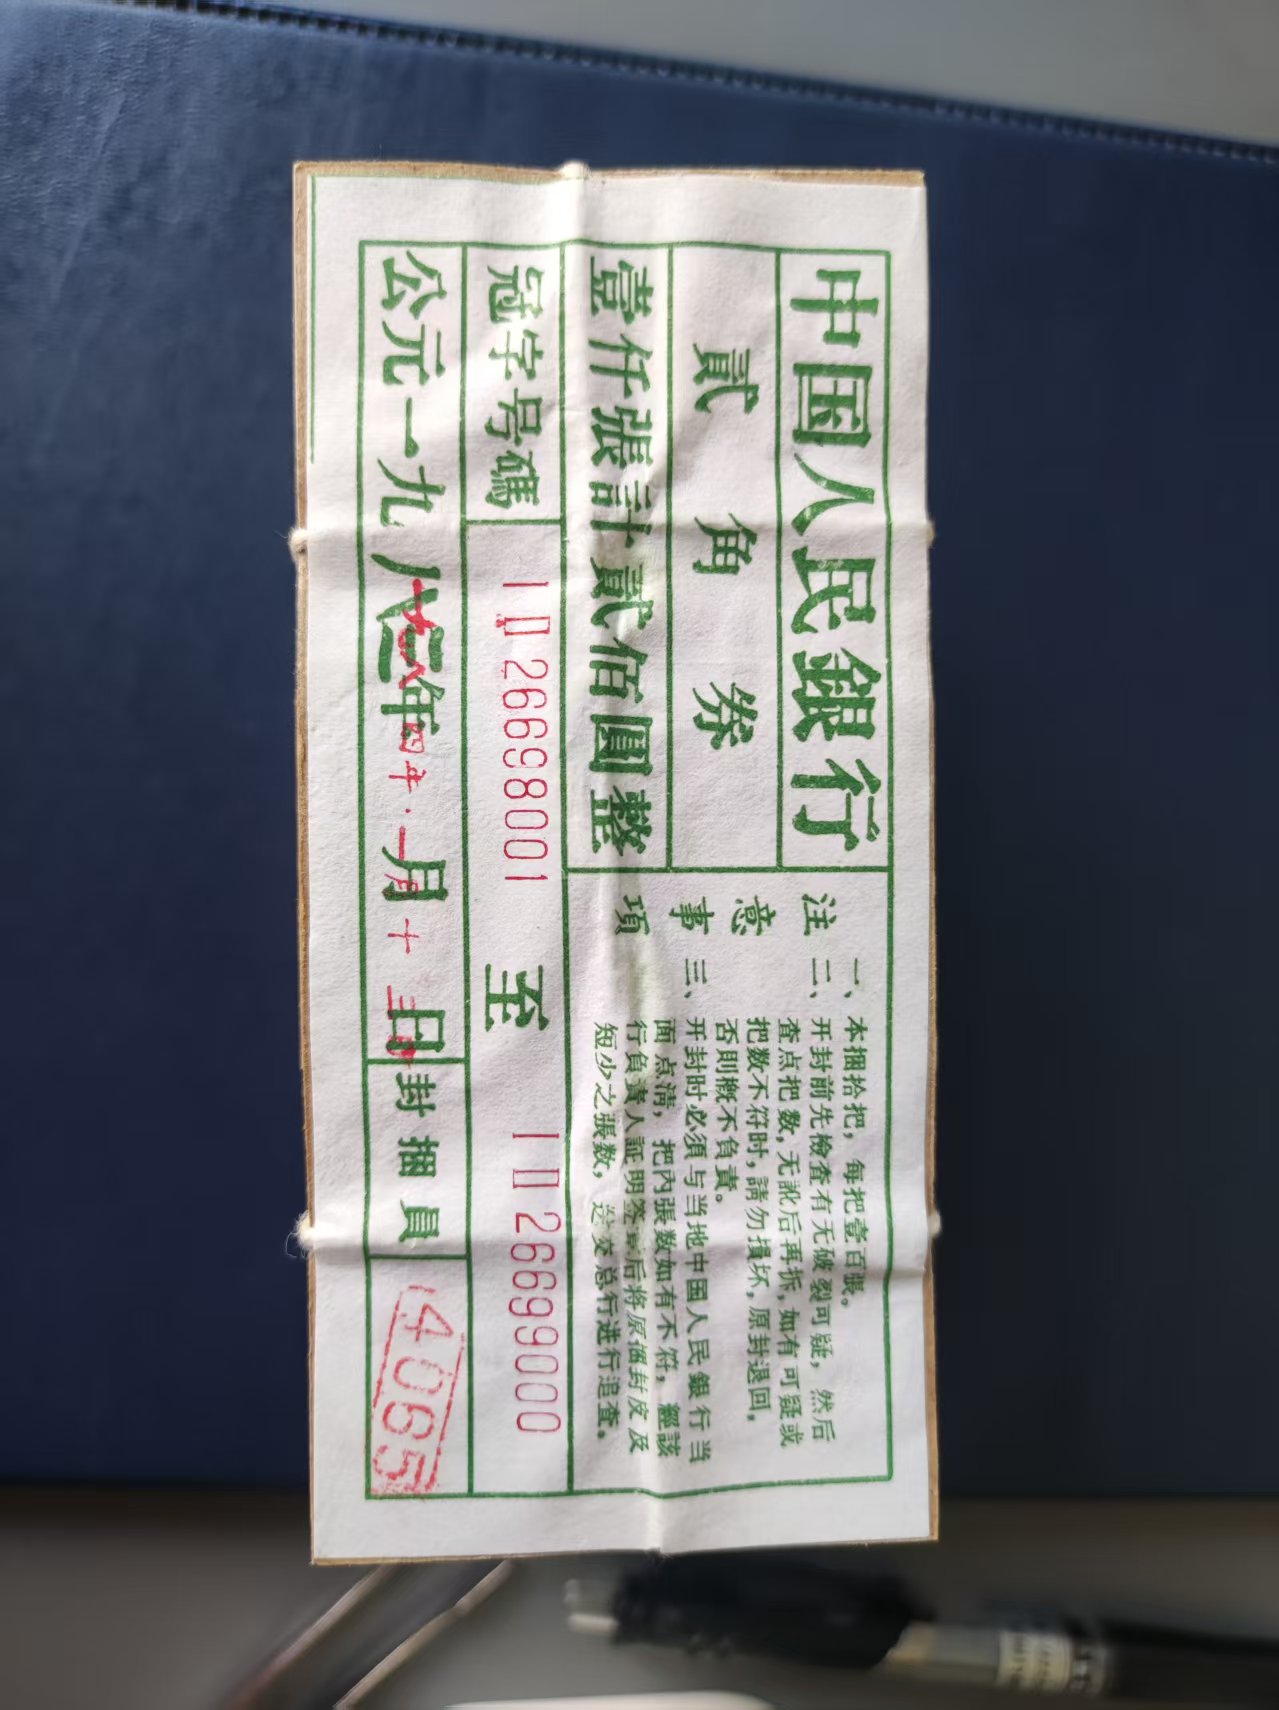 中国人民銀行
貳角券
壹仟張計貳佰圓整
注意事項
一、本捆拾把，每把壹百張。
二、开封前先檢查有无破裂可疑，然后
查点把数，无訛后再拆，如有可疑或
把数不符时，請勿損坏，原封退回，
否則概不負責。
三、开封时必須与当地中国人民銀行当
面点清，把內張数如有不符，經該
行負責人証明签后將原捆封皮及
短少之張数，送交总行进行追查。
冠字号碼 ⅠⅡ 26698001 至 ⅠⅡ 26699000
公元一九八年 月 日 封捆員 4065
四年.一月十三日